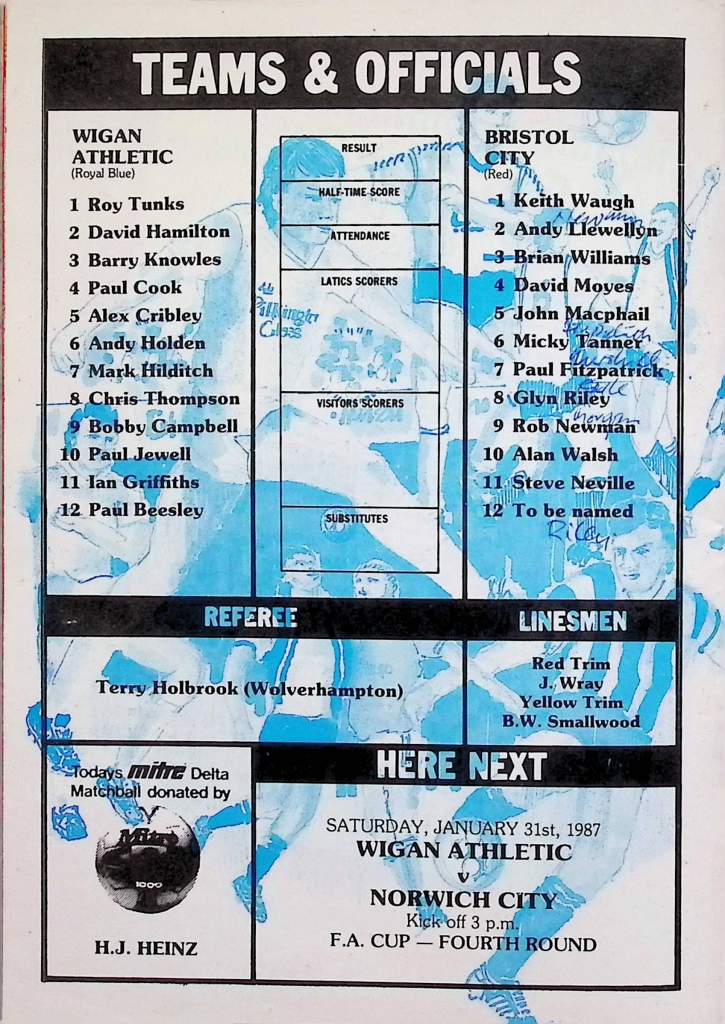 TEAMS & OFFICIALS
WIGAN
ATHLETIC
(Royal Blue)
1 Roy Tunks
2 David Hamilton
3 Barry Knowles
4 Paul Cook
5 Alex Cribley
6 Andy Holden
7 Mark Hilditch
8 Chris Thompson
9 Bobby Campbell
10 Paul Jewell
11 Ian Griffiths
12 Paul Beesley
RESULT
HALF-TIME SCORE
ATTENDANCE
LATICS SCORERS
Pilkington
Glass
VISITORS SCORERS
SUBSTITUTES
BRISTOL
CITY
(Red)
1 Keith Waugh
Newman
2 Andy Llewellyn
3 Brian Williams
4 David Moyes
5 John Macphail
6 Micky Tanner
7 Paul Fitzpatrick
8 Glyn Riley
Morgan
9 Rob Newman
10 Alan Walsh
11 Steve Neville
12 To be named
Riley
REFEREE
Terry Holbrook (Wolverhampton)
LINESMEN
Red Trim
J. Wray
Yellow Trim
B.W. Smallwood
Todays mitre Delta
Matchball donated by
Mitre
1000
H.J. HEINZ
HERE NEXT
SATURDAY, JANUARY 31st, 1987
WIGAN ATHLETIC
v
NORWICH CITY
Kick off 3 p.m.
F.A. CUP — FOURTH ROUND